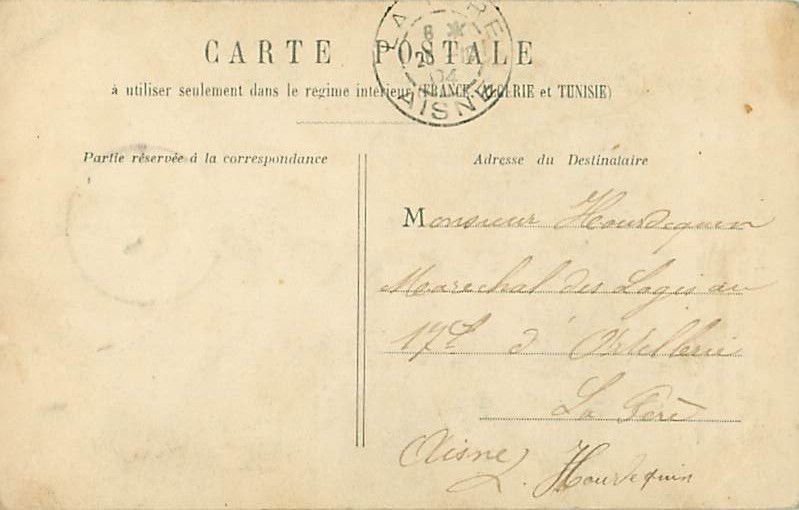 CARTE POSTALE
à utiliser seulement dans le regime intérieur (FRANCE, ALGERIE et TUNISIE)
LA FERE
6
04
AISNE
Partie réservée à la correspondance
Adresse du Destinataire
Monsieur Hourdequin
Marechal des Logis au
17e d'Artillerie
La Fère
Aisne
Hourdequin